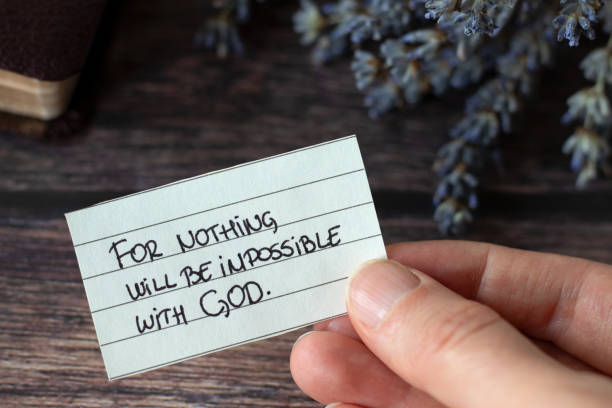 FOR NOTHING
WILL BE IMPOSSIBLE
WITH GOD.